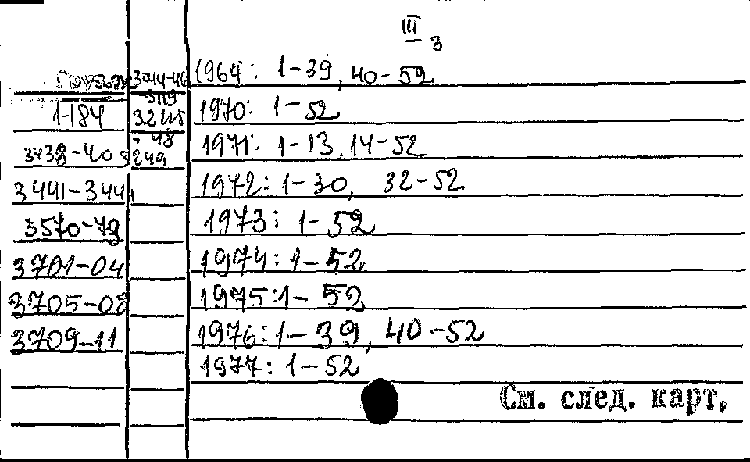 III 3
1964: 1-39, 40-52
1-184 1970: 1-52
1971: 1-13, 14-52
3438-40 249
3441-344 1972: 1-30, 32-52
3570-79 1973: 1-52
3701-04 1974: 1-52
3705-08 1975: 1-52
3709-11 1976: 1-39, 40-52
1977: 1-52
См. след. карт.